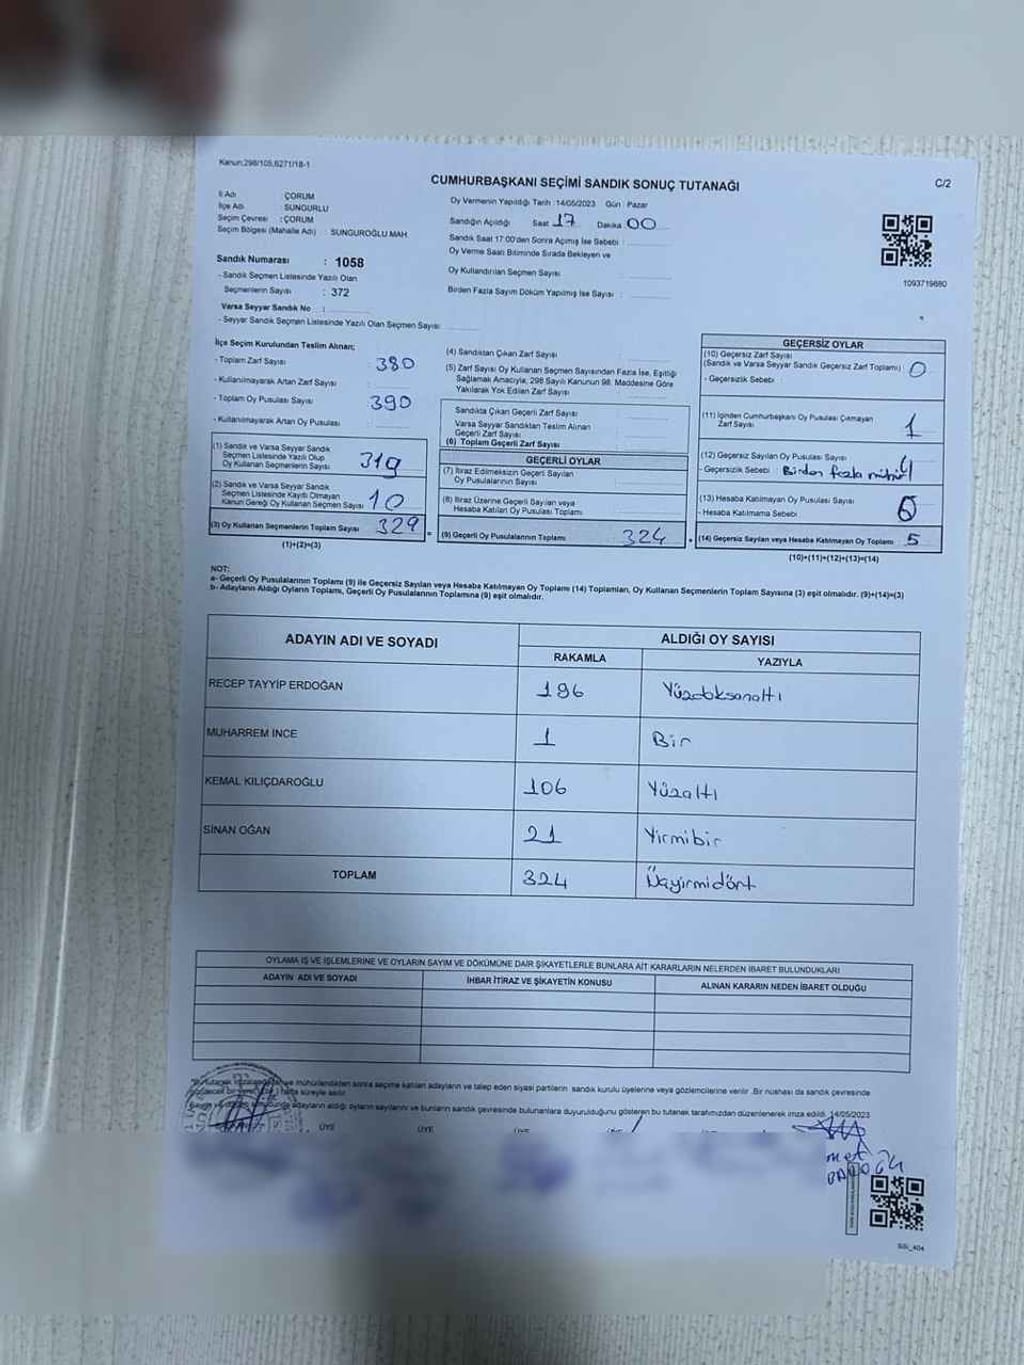 Kanun:298/105,6271/18-1
C/2
CUMHURBAŞKANI SEÇİMİ SANDIK SONUÇ TUTANAĞI
İl Adı : ÇORUM
İlçe Adı : SUNGURLU
Seçim Çevresi : ÇORUM
Seçim Bölgesi (Mahalle Adı) : SUNGUROĞLU MAH.
Sandık Numarası : 1058
- Sandık Seçmen Listesinde Yazılı Olan
Seçmenlerin Sayısı : 372
Varsa Seyyar Sandık No :
- Seyyar Sandık Seçmen Listesinde Yazılı Olan Seçmen Sayısı
Oy Vermenin Yapıldığı Tarih :14/05/2023 Gün : Pazar
Sandığın Açıldığı Saat 17 Dakika 00
Sandık Saat 17:00'den Sonra Açılmış İse Sebebi :
Oy Verme Saati Bitiminde Sırada Bekleyen ve
Oy Kullandırılan Seçmen Sayısı
Birden Fazla Sayım Döküm Yapılmış İse Sayısı :
1093719680
İlçe Seçim Kurulundan Teslim Alınan;
- Toplam Zarf Sayısı : 380
- Kullanılmayarak Artan Zarf Sayısı :
- Toplam Oy Pusulası Sayısı : 390
- Kullanılmayarak Artan Oy Pusulası :
(1) Sandık ve Varsa Seyyar Sandık
Seçmen Listesinde Yazılı Olup
Oy Kullanan Seçmenlerin Sayısı 319
(2) Sandık ve Varsa Seyyar Sandık
Seçmen Listesinde Kayıtlı Olmayan
Kanun Gereği Oy Kullanan Seçmen Sayısı 10
(3) Oy Kullanan Seçmenlerin Toplam Sayısı 329
(1)+(2)=(3)
(4) Sandıktan Çıkan Zarf Sayısı
(5) Zarf Sayısı Oy Kullanan Seçmen Sayısından Fazla İse, Eşitliği
Sağlamak Amacıyla, 298 Sayılı Kanunun 98. Maddesine Göre
Yakılarak Yok Edilen Zarf Sayısı
Sandıkta Çıkan Geçerli Zarf Sayısı
Varsa Seyyar Sandıktan Teslim Alınan
Geçerli Zarf Sayısı
(6) Toplam Geçerli Zarf Sayısı
GEÇERLİ OYLAR
(7) İtiraz Edilmeksizin Geçerli Sayılan
Oy Pusulalarının Sayısı
(8) İtiraz Üzerine Geçerli Sayılan veya
Hesaba Katılan Oy Pusulası Toplamı
(9) Geçerli Oy Pusulalarının Toplamı 324
GEÇERSİZ OYLAR
(10) Geçersiz Zarf Sayısı
(Sandık ve Varsa Seyyar Sandık Geçersiz Zarf Toplamı) 0
- Geçersizlik Sebebi :
(11) İçinden Cumhurbaşkanı Oy Pusulası Çıkmayan
Zarf Sayısı 1
(12) Geçersiz Sayılan Oy Pusulası Sayısı 4
- Geçersizlik Sebebi : Birden fazla mühür
(13) Hesaba Katılmayan Oy Pusulası Sayısı 0
- Hesaba Katılmama Sebebi :
(14) Geçersiz Sayılan veya Hesaba Katılmayan Oy Toplamı 5
(10)+(11)+(12)+(13)=(14)
NOT:
a- Geçerli Oy Pusulalarının Toplamı (9) ile Geçersiz Sayılan veya Hesaba Katılmayan Oy Toplamı (14) Toplamları, Oy Kullanan Seçmenlerin Toplam Sayısına (3) eşit olmalıdır. (9)+(14)=(3)
b- Adayların Aldığı Oyların Toplamı, Geçerli Oy Pusulalarının Toplamına (9) eşit olmalıdır.
ADAYIN ADI VE SOYADI ALDIĞI OY SAYISI
RAKAMLA YAZIYLA
RECEP TAYYİP ERDOĞAN 196 Yüzdoksanaltı
MUHARREM İNCE 1 Bir
KEMAL KILIÇDAROĞLU 106 Yüzaltı
SİNAN OĞAN 21 Yirmibir
TOPLAM 324 Üçyirmidört
OYLAMA İŞ VE İŞLEMLERİNE VE OYLARIN SAYIM VE DÖKÜMÜNE DAİR ŞİKAYETLERLE BUNLARA AİT KARARLARIN NELERDEN İBARET BULUNDUKLARI
ADAYIN ADI VE SOYADI İHBAR İTİRAZ VE ŞİKAYETİN KONUSU ALINAN KARARIN NEDEN İBARET OLDUĞU
ve mühürlendikten sonra seçime katılan adayların ve talep eden siyasi partilerin sandık kurulu üyelerine veya gözlemcilerine verilir. Bir nüshası da sandık çevresinde
süreyle asılır.
adayların aldığı oyların sayılarını ve bunların sandık çevresinde bulunanlara duyurulduğunu gösteren bu tutanak tarafımızdan düzenlenerek imza edildi. 14/05/2023
ÜYE ÜYE ÜYE